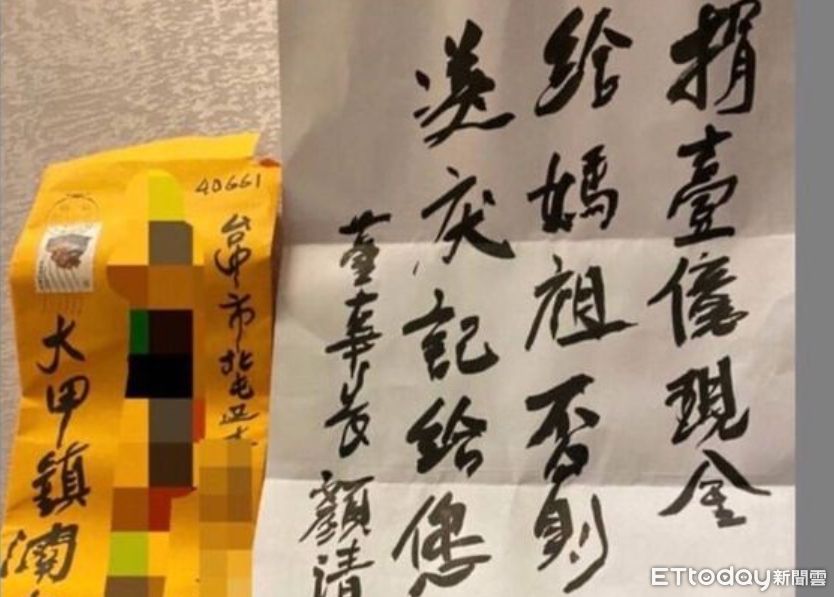 捐壹億現金
給媽祖否則
災厄記給您
董事長顏清
40661
台中市北屯區
大甲鎮瀾
ETtoday新聞雲